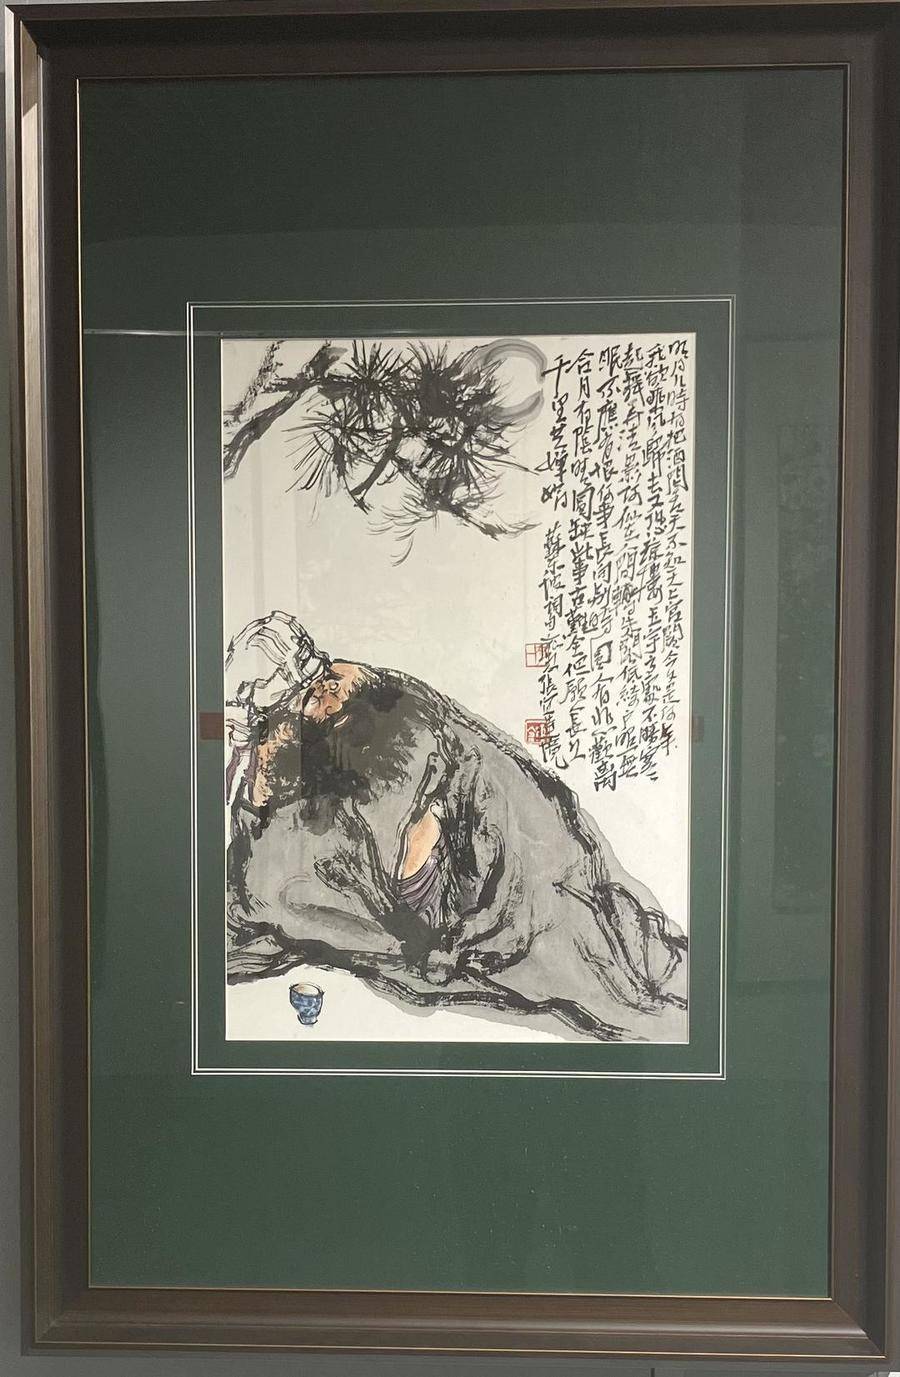 明月几時有把酒问青天不知天上宫闕今夕是何年
我欲乘风歸去又恐琼樓玉宇高處不勝寒
起舞弄清影何似在人間轉朱閣低綺户照無
眠不應有恨何事長向别時圆人有悲歡离
合月有陰晴圓缺此事古難全但願長久
千里共嬋娟 蘇東坡詞